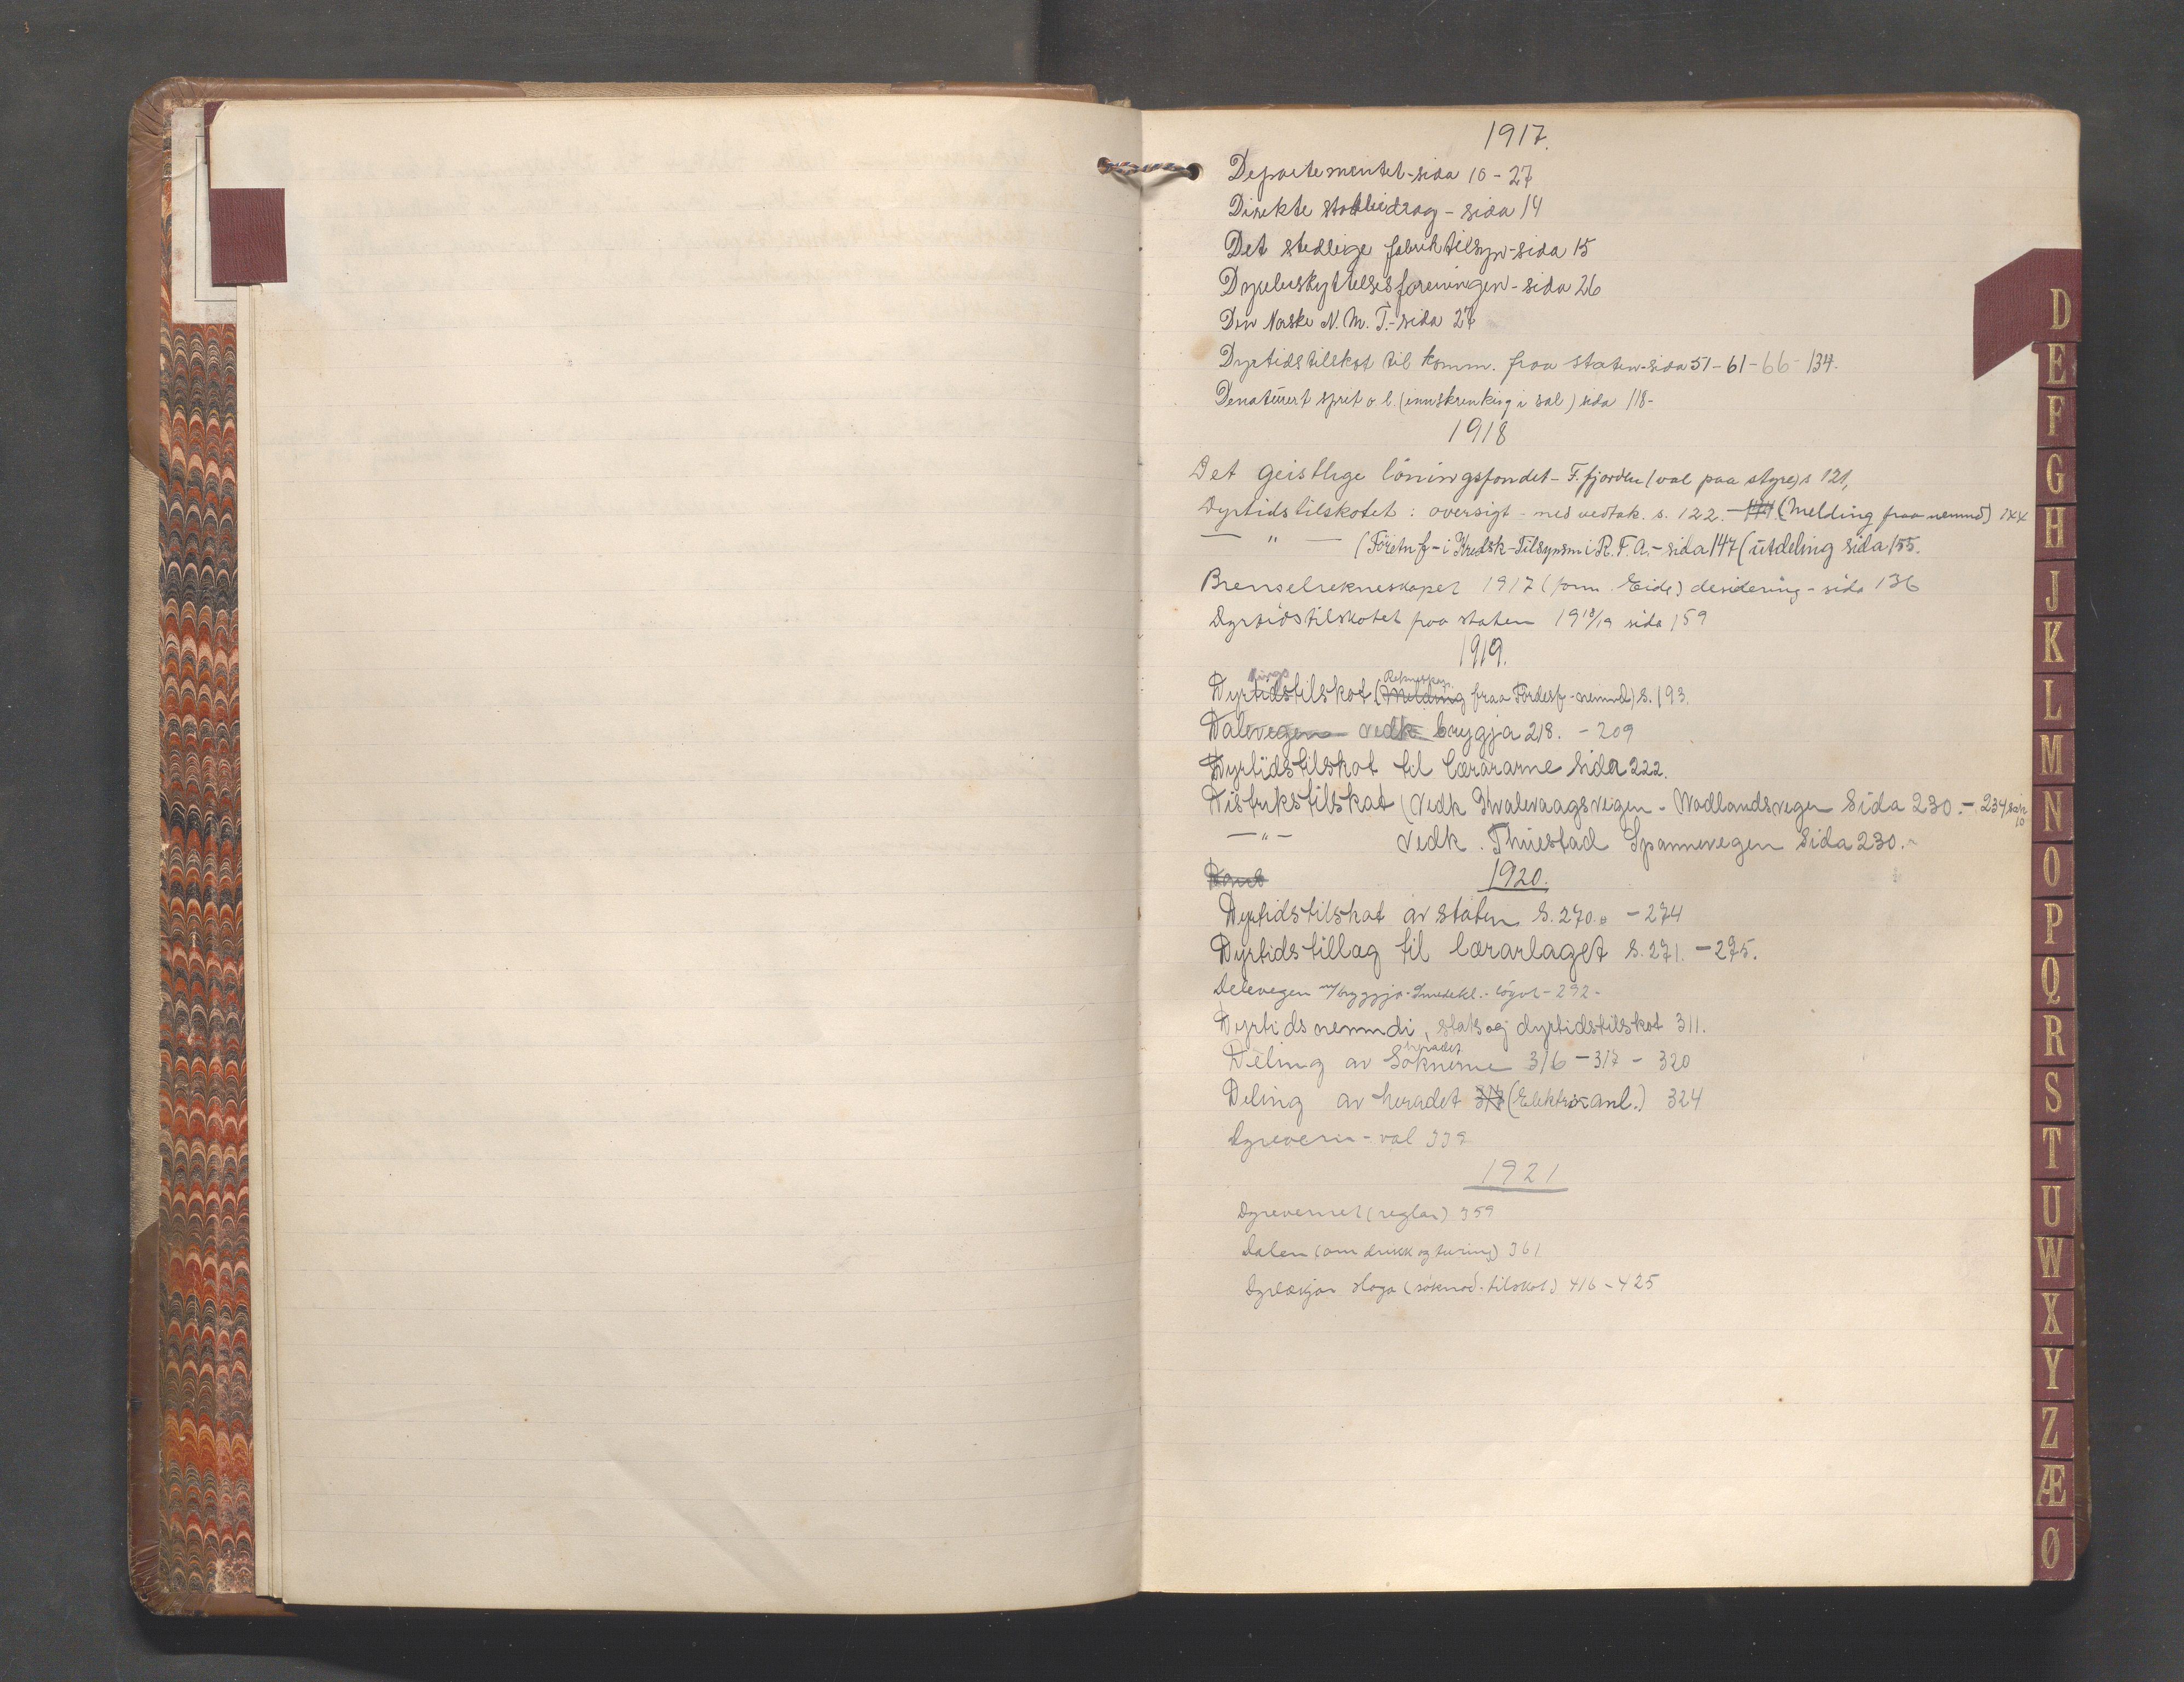 1917.
Departementet-sida 10-27
Direkte statsbidrag - sida 14
Det stedlige fabriktilsyn-sida 15
Dyrebeskyttelsesforeningen - sida 26
Den Norske N. M. T.-sida 27
Dyrtidstilskot til komm. fraa staten-sida 51-61-66-134.
Denatürert sprit o l. (innskrenking i sal) sida 118-
1918
Det geistlige löningsfondet - F. fjorden (val paa styre) s 121,
Dyrtidstilskotet: oversigt - med vedtak. s. 122. - (Melding fraa nemnd) 144
— " — i Kredsk-Tilsynsm i R. F. A. - sida 147 (utdeling sida 155.
Brenselrekneskapet 1917 (form. Eide) desidering - sida 136
Dyrtidstilskotet fraa staten 1918/19 sida 159
1919.
Dyrtidstilskot (Melding fraa Fördesf-nemnd) s. 193.
Rekneskap
Dalevegen vedk brygja 218. - 209
Dyrtidstilskot til lærararne Sida 222.
Distriktstilskot (Vedk Kvalevaagsvegen - Vadlandsvegen Sida 230.- 234
—"— Vedk. Thuestad Spannevegen Sida 230.-
1920.
Dyrtidstilskot av staten S. 270. - 274
Dyrtidstillæg til lærarlaget S. 271. - 275.
Dalevegen m/bryggja - 292-
Dyrtidsnemndi, stats og dyrtidstilskot 311.
heradet
Deling av Soknerne 316 - 317 - 320
Deling av heradet (Elektris anl.) 324
Dyrevern - val 339
1921
Dyrevernet (reglar) 359
Dalen (om drikk og turing) 361
Dyrlækjar (söknad-tilskot) 416 - 425
D
E
F
G
H
J
K
L
M
N
O
P
Q
R
S
T
U
W
X
Y
Z
Æ
Ø